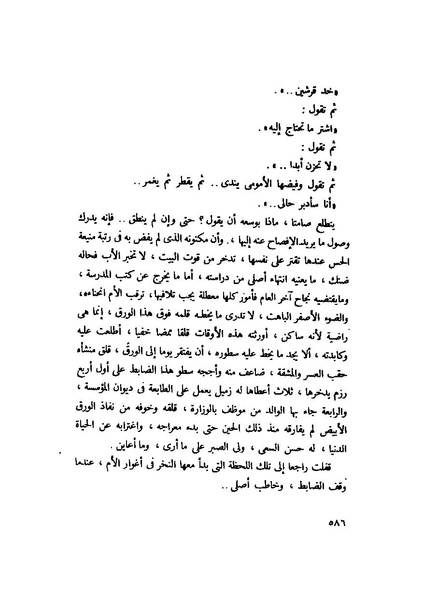 «خد قرشين ..» .
ثم تقول :
«اشتر ما تحتاج إليه» .
ثم تقول :
«لا تحزن أبدا ..» .
ثم تقول وفيضها الأمومى يندى .. ثم يقطر ثم يغمر ..
«أنا سأدبر حالى ..» .
يتطلع صامتا ، ماذا بوسعه أن يقول ؟ حتى وإن لم ينطق .. فإنه يدرك
وصول ما يريد الإفصاح عنه إليها ، . وأن مكنونه الذى لم يفض به فى رتبة منيعة
الحس عندها تقتر على نفسها ، تدخر من قوت البيت ، لا تخبر الأب فحاله
ضنك ، ما يعنيه انتهاء أصلى من دراسته ، أما ما يخرج عن كتب المدرسة ،
ومايقتضيه نجاح آخر العام فأمور كلها معطلة يجب تلافيها، ترقب الأم انحناءه،
والضوء الأصفر الباهت ، لا تدرى ما يخطه قلمه فوق هذا الورق ، إنما هى
راضية لأنه ساكن ، أورثته هذه الأوقات قلقا ممضا خفيا ، أطلعت عليه
وكابدته ، ألا يجد ما يخط عليه سطوره ، أن يفتقر يوما إلى الورق ، قلق منشأه
حقب العسر والمشقة ، ضاعف منه وأججه سطو هذا الضابط على أول أربع
رزم يدخرها ، ثلاث أعطاها له زميل يعمل على الطابعة فى ديوان المؤسسة ،
والرابعة جاء بها الوالد من موظف بالوزارة ، قلقه وخوفه من نفاذ الورق
الأبيض لم يفارقه منذ ذلك الحين حتى بدء معراجه ، واغترابه عن الحياة
الدنيا ، له حسن السعى ، ولى الصبر على ما أرى ، وما أعاين .
قفلت راجعا إلى تلك اللحظة التى بدأ معها النخر فى أغوار الأم ، عندما
وقف الضابط ، وخاطب أصلى ..
٥٨٦